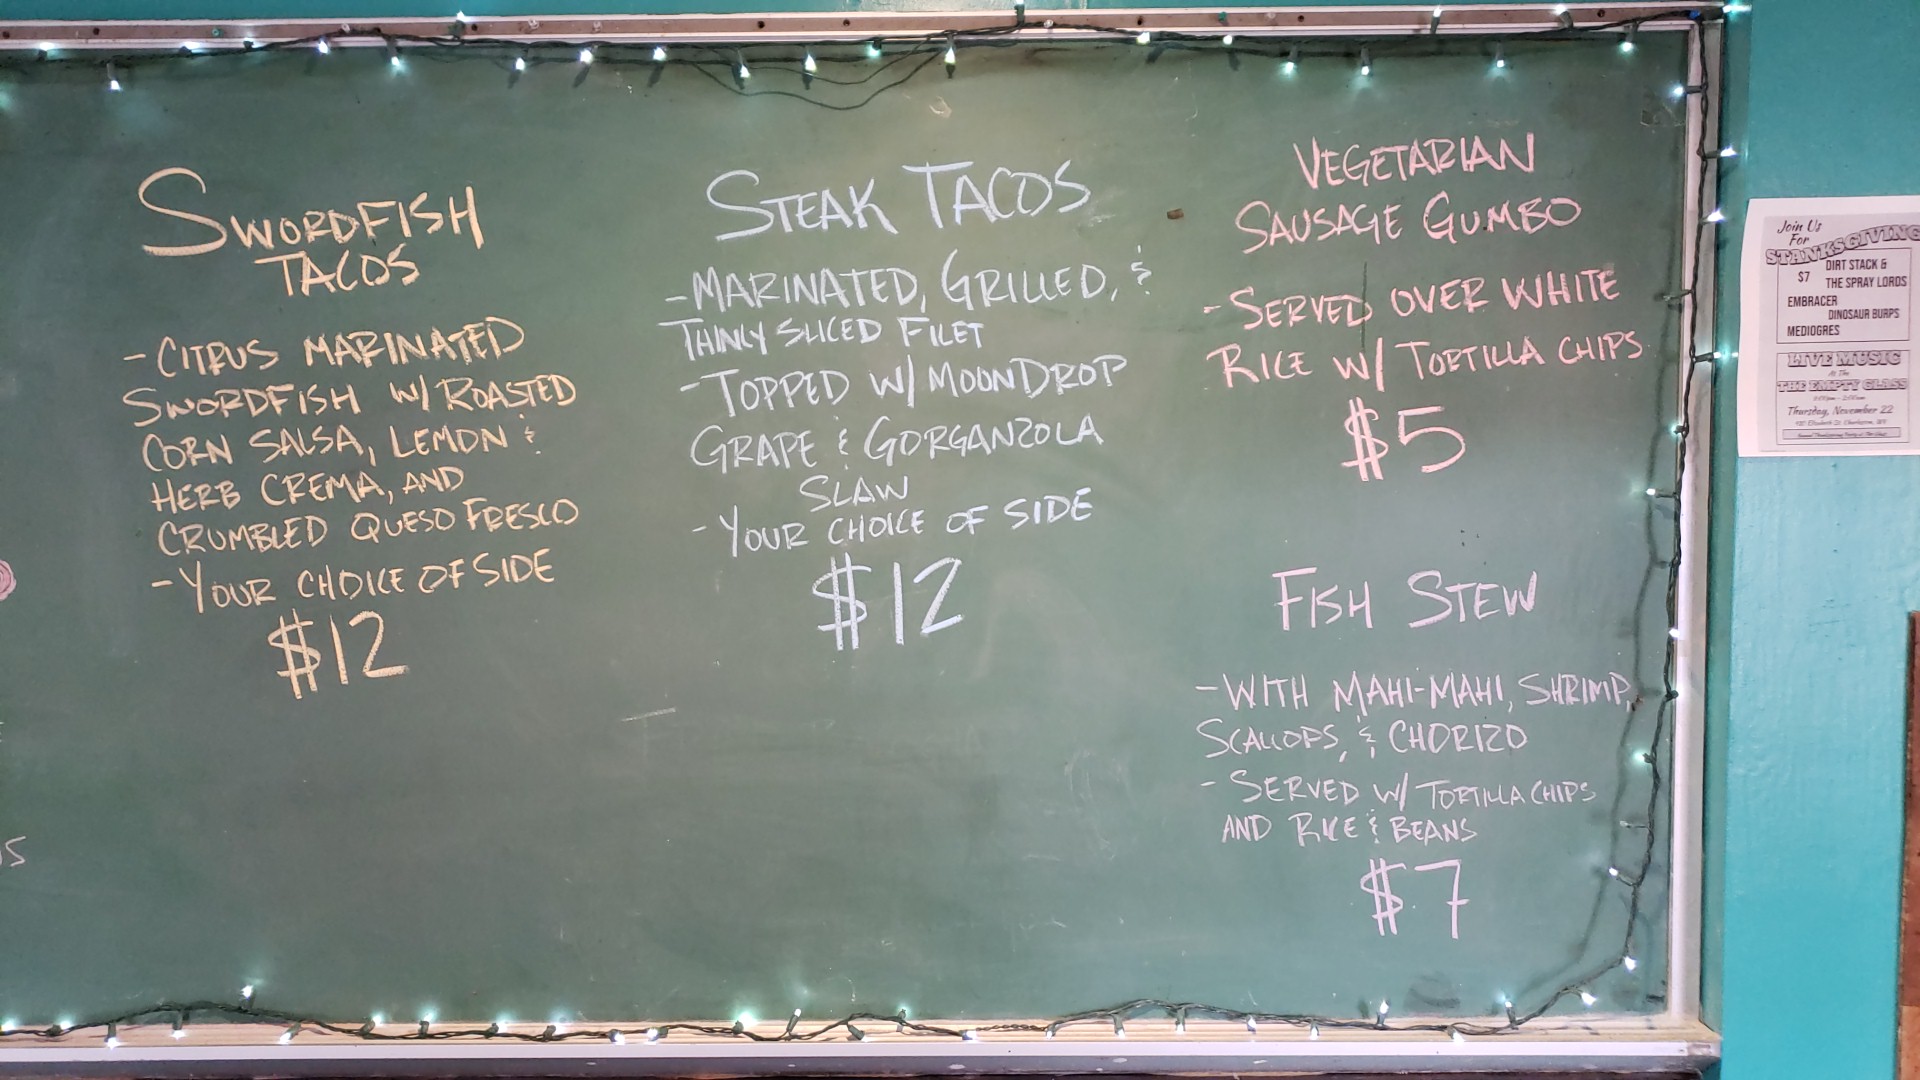 SWORDFISH
TACOS
- CITRUS MARINATED
SWORDFISH W/ ROASTED
CORN SALSA, LEMON &
HERB CREMA, AND
CRUMBLED QUESO FRESCO
- YOUR CHOICE OF SIDE
$12
STEAK TACOS
- MARINATED, GRILLED, &
THINLY SLICED FILET
- TOPPED W/ MOONDROP
GRAPE & GORGANZOLA
SLAW
- YOUR CHOICE OF SIDE
$12
VEGETARIAN
SAUSAGE GUMBO
- SERVED OVER WHITE
RICE W/ TORTILLA CHIPS
$5
FISH STEW
- WITH MAHI-MAHI, SHRIMP,
SCALLOPS, & CHORIZO
- SERVED W/ TORTILLA CHIPS
AND RICE & BEANS
$7
Join Us
For
STANKSGIVING
$7
DIRT STACK &
THE SPRAY LORDS
EMBRACER
DINOSAUR BURPS
MEDIOGRES
LIVE MUSIC
At The
THE EMPTY GLASS
Thursday, November 22